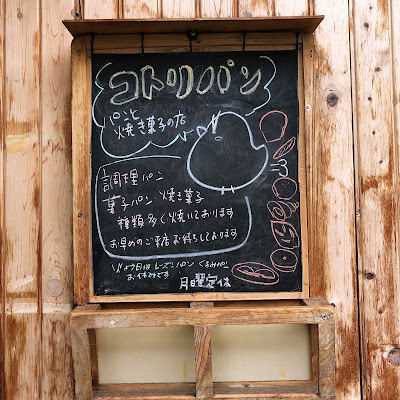 コトリパン
パンと
焼き菓子の店
調理パン
菓子パン 焼き菓子
種類多く焼いております
お早めのご来店お待ちしております
レーズンパン くるみパン
お休みです
月曜定休